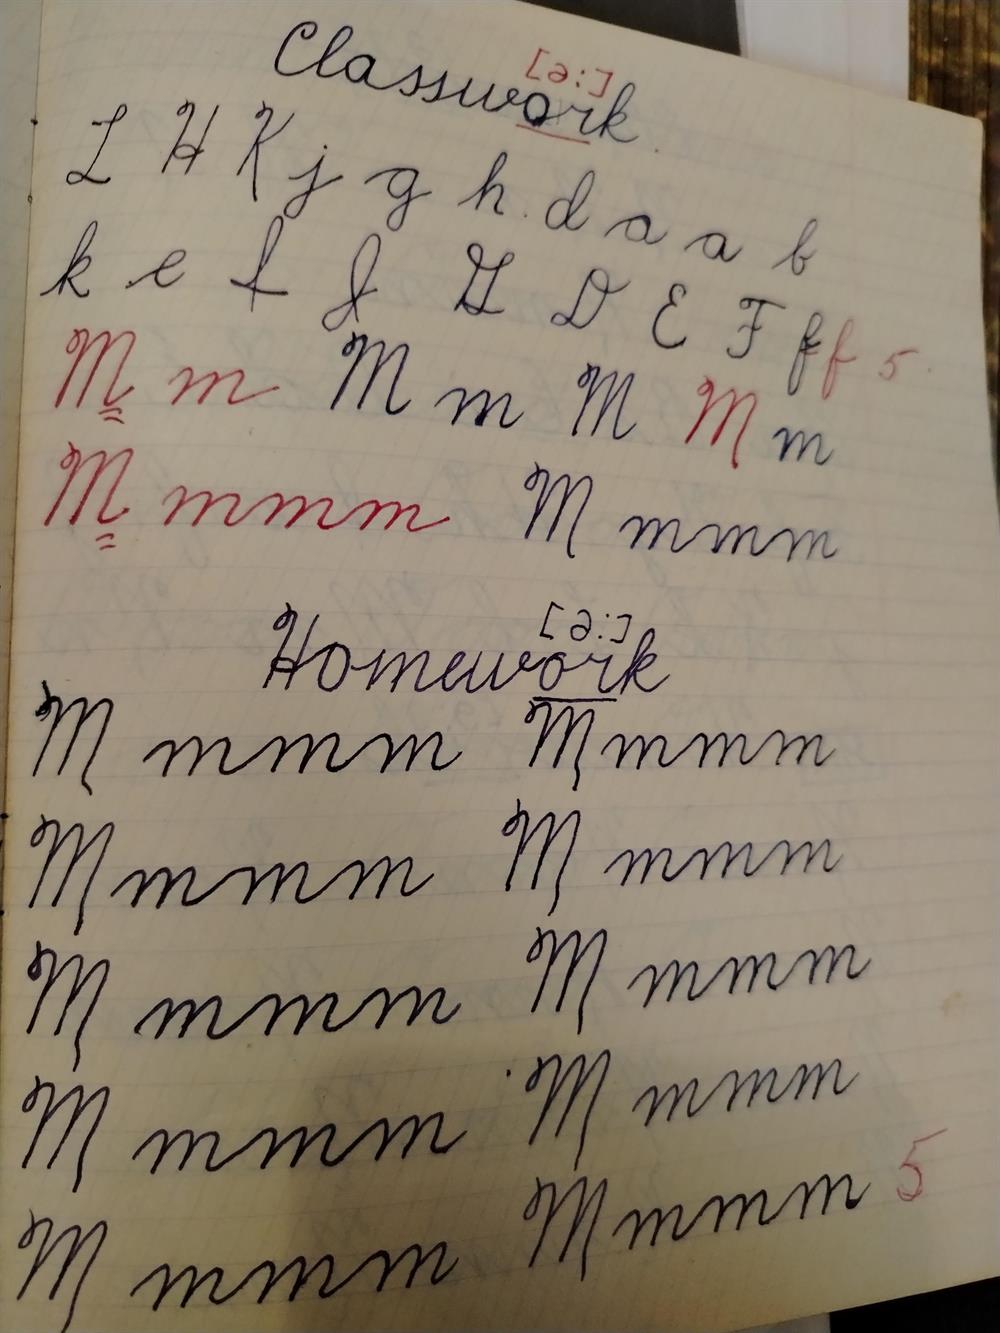 [ə:]
Classwork.
L H K j g h d a a b
k e f J G D E F f f 5.
M m M m M M m
M m m m M m m m
[ə:]
Homework
M m m m M m m m
M m m m M m m m
M m m m M m m m
M m m m M m m m
M m m m M m m m 5